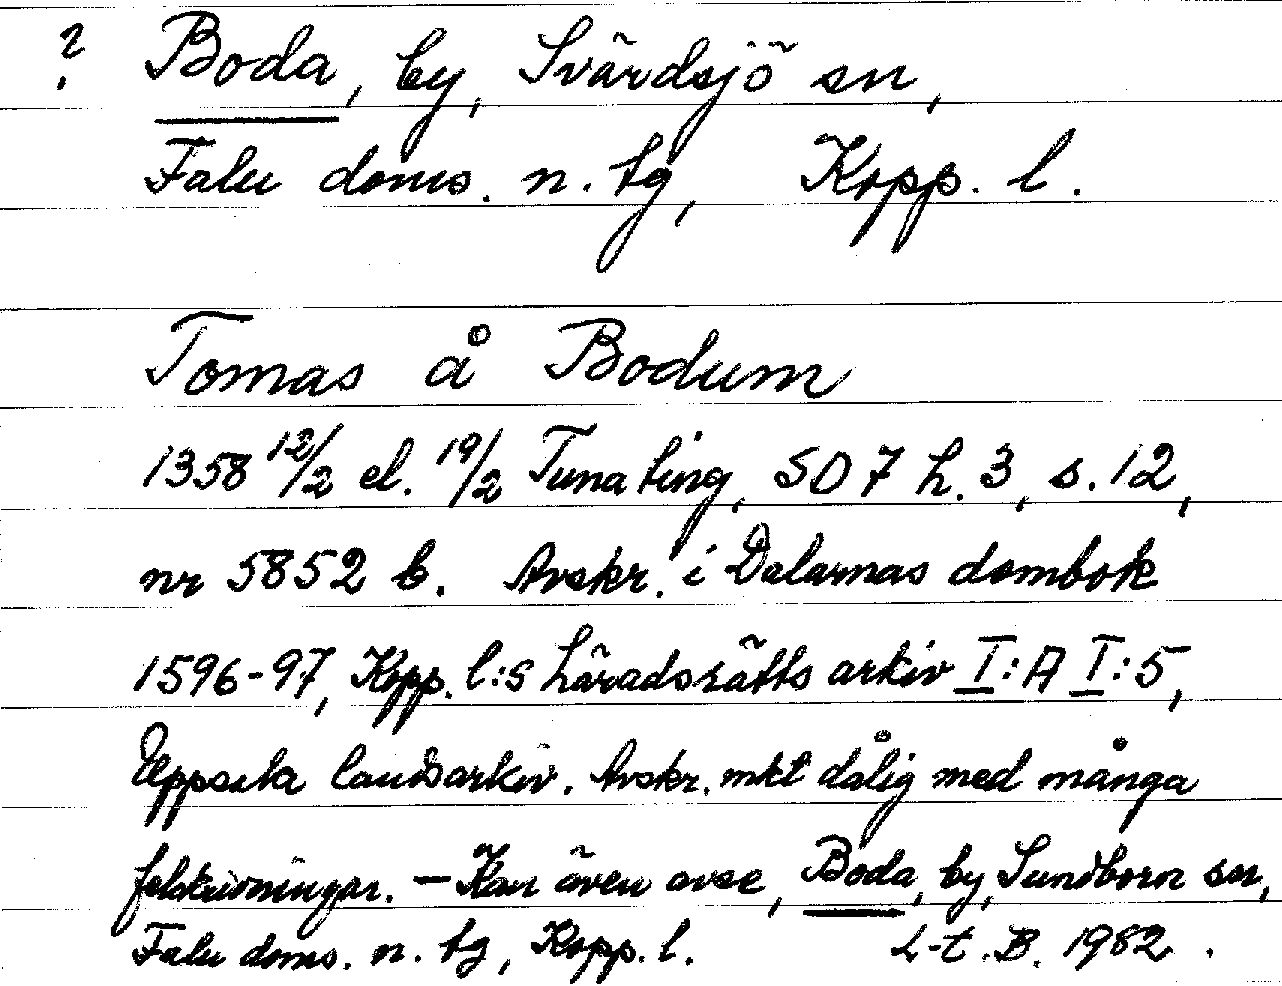 ? Boda, by, Svärdsjö sn,
Falu doms. n. tg, Kopp. l.
Tomas å Bodum
1358 12/2 el. 19/2 Tuna ting, SD 7 h. 3, s. 12,
nr 5852 b. Avskr. i Dalarnas dombok
1596-97, Kopp. l:s häradsrätts arkiv I:A I:5,
Uppsala landsarkiv. Avskr. mkt dålig med många
felskrivningar. — Kan även avse, Boda, by, Sundborn sn,
Falu doms. n. tg, Kopp. l. L-t. B. 1982.